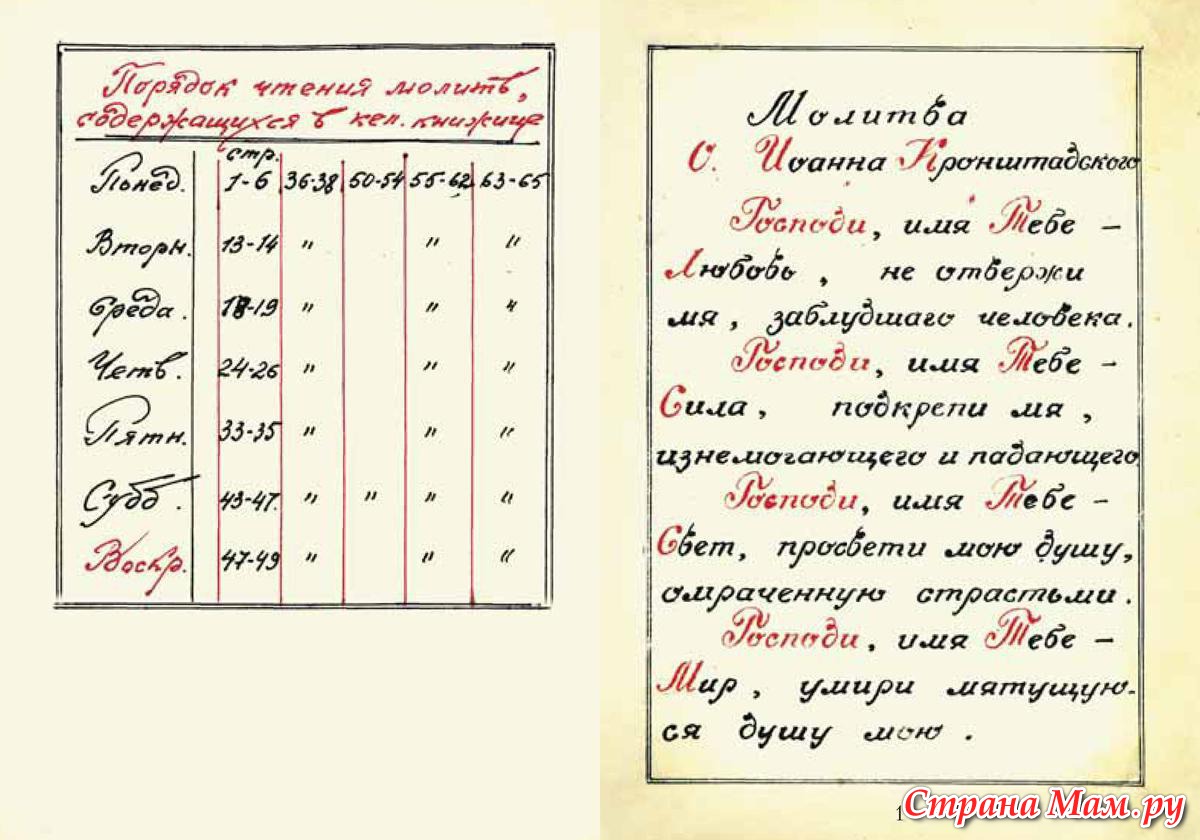 Порядок чтения молитв,
содержащихся в кел. книжице
стр.
Понед. 1-6 36-38 50-54 55-62 63-65
Вторн. 13-14 " " "
Среда. 18-19 " " "
Четв. 24-26 " " "
Пятн. 33-35 " " "
Субб. 43-47. " " " "
Воскр. 47-49 " " "
Молитва
О. Иоанна Кронштадского
Господи, имя Тебе –
Любовь, не отвержи
мя, заблудшаго человека.
Господи, имя Тебе –
Сила, подкрепи мя,
изнемогающего и падающего.
Господи, имя Тебе –
Свет, просвети мою душу,
омраченную страстьми.
Господи, имя Тебе –
Мир, умири мятущую-
ся душу мою.
1
Страна Мам.ру